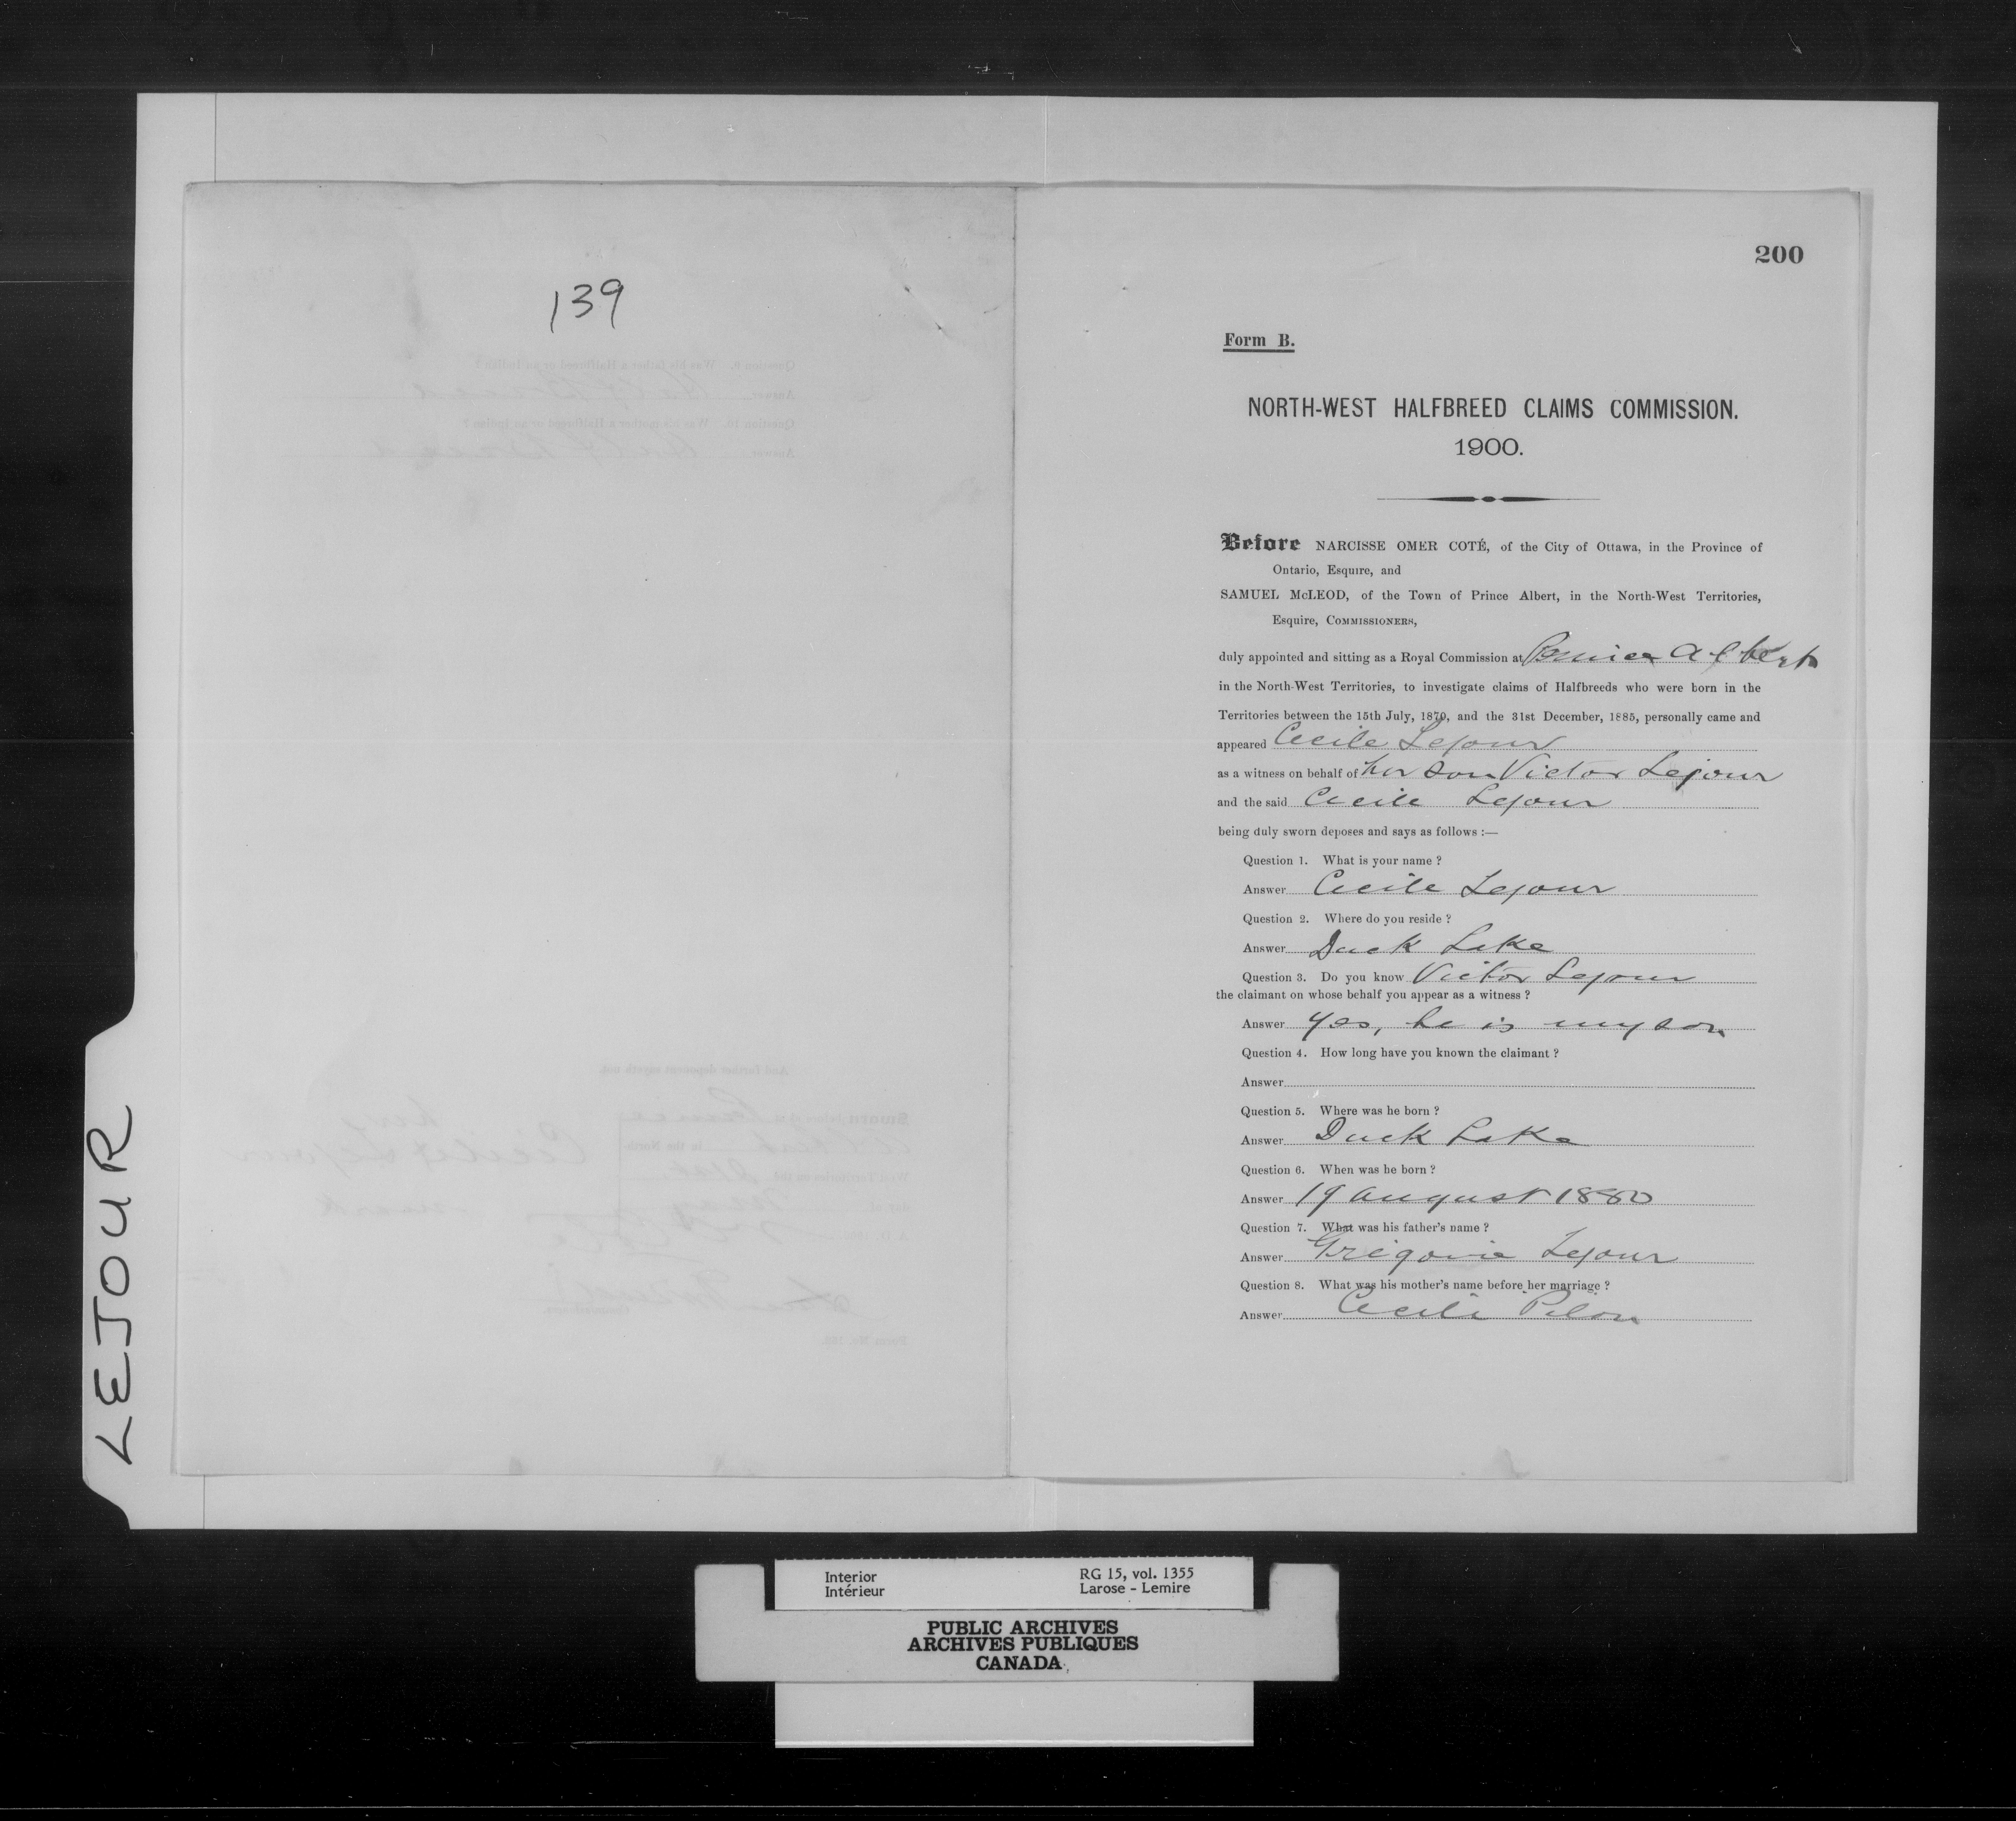 139
LEJOUR
200
Form B.
NORTH-WEST HALFBREED CLAIMS COMMISSION.
1900.
Before NARCISSE OMER COTÉ, of the City of Ottawa, in the Province of
Ontario, Esquire, and
SAMUEL McLEOD, of the Town of Prince Albert, in the North-West Territories,
Esquire, COMMISSIONERS,
duly appointed and sitting as a Royal Commission at Prince Albert
in the North-West Territories, to investigate claims of Halfbreeds who were born in the
Territories between the 15th July, 1870, and the 31st December, 1885, personally came and
appeared Cecile Lejour
as a witness on behalf of her son Victor Lejour
and the said Cecile Lejour
being duly sworn deposes and says as follows :—
Question 1. What is your name ?
Answer Cecile Lejour
Question 2. Where do you reside ?
Answer Duck Lake
Question 3. Do you know Victor Lejour
the claimant on whose behalf you appear as a witness ?
Answer Yes, he is my son
Question 4. How long have you known the claimant ?
Answer
Question 5. Where was he born ?
Answer Duck Lake
Question 6. When was he born ?
Answer 19 August 1880
Question 7. What was his father's name ?
Answer Gregoire Lejour
Question 8. What was his mother's name before her marriage ?
Answer Cecile Pilon
Interior
Intérieur
RG 15, vol. 1355
Larose - Lemire
PUBLIC ARCHIVES
ARCHIVES PUBLIQUES
CANADA